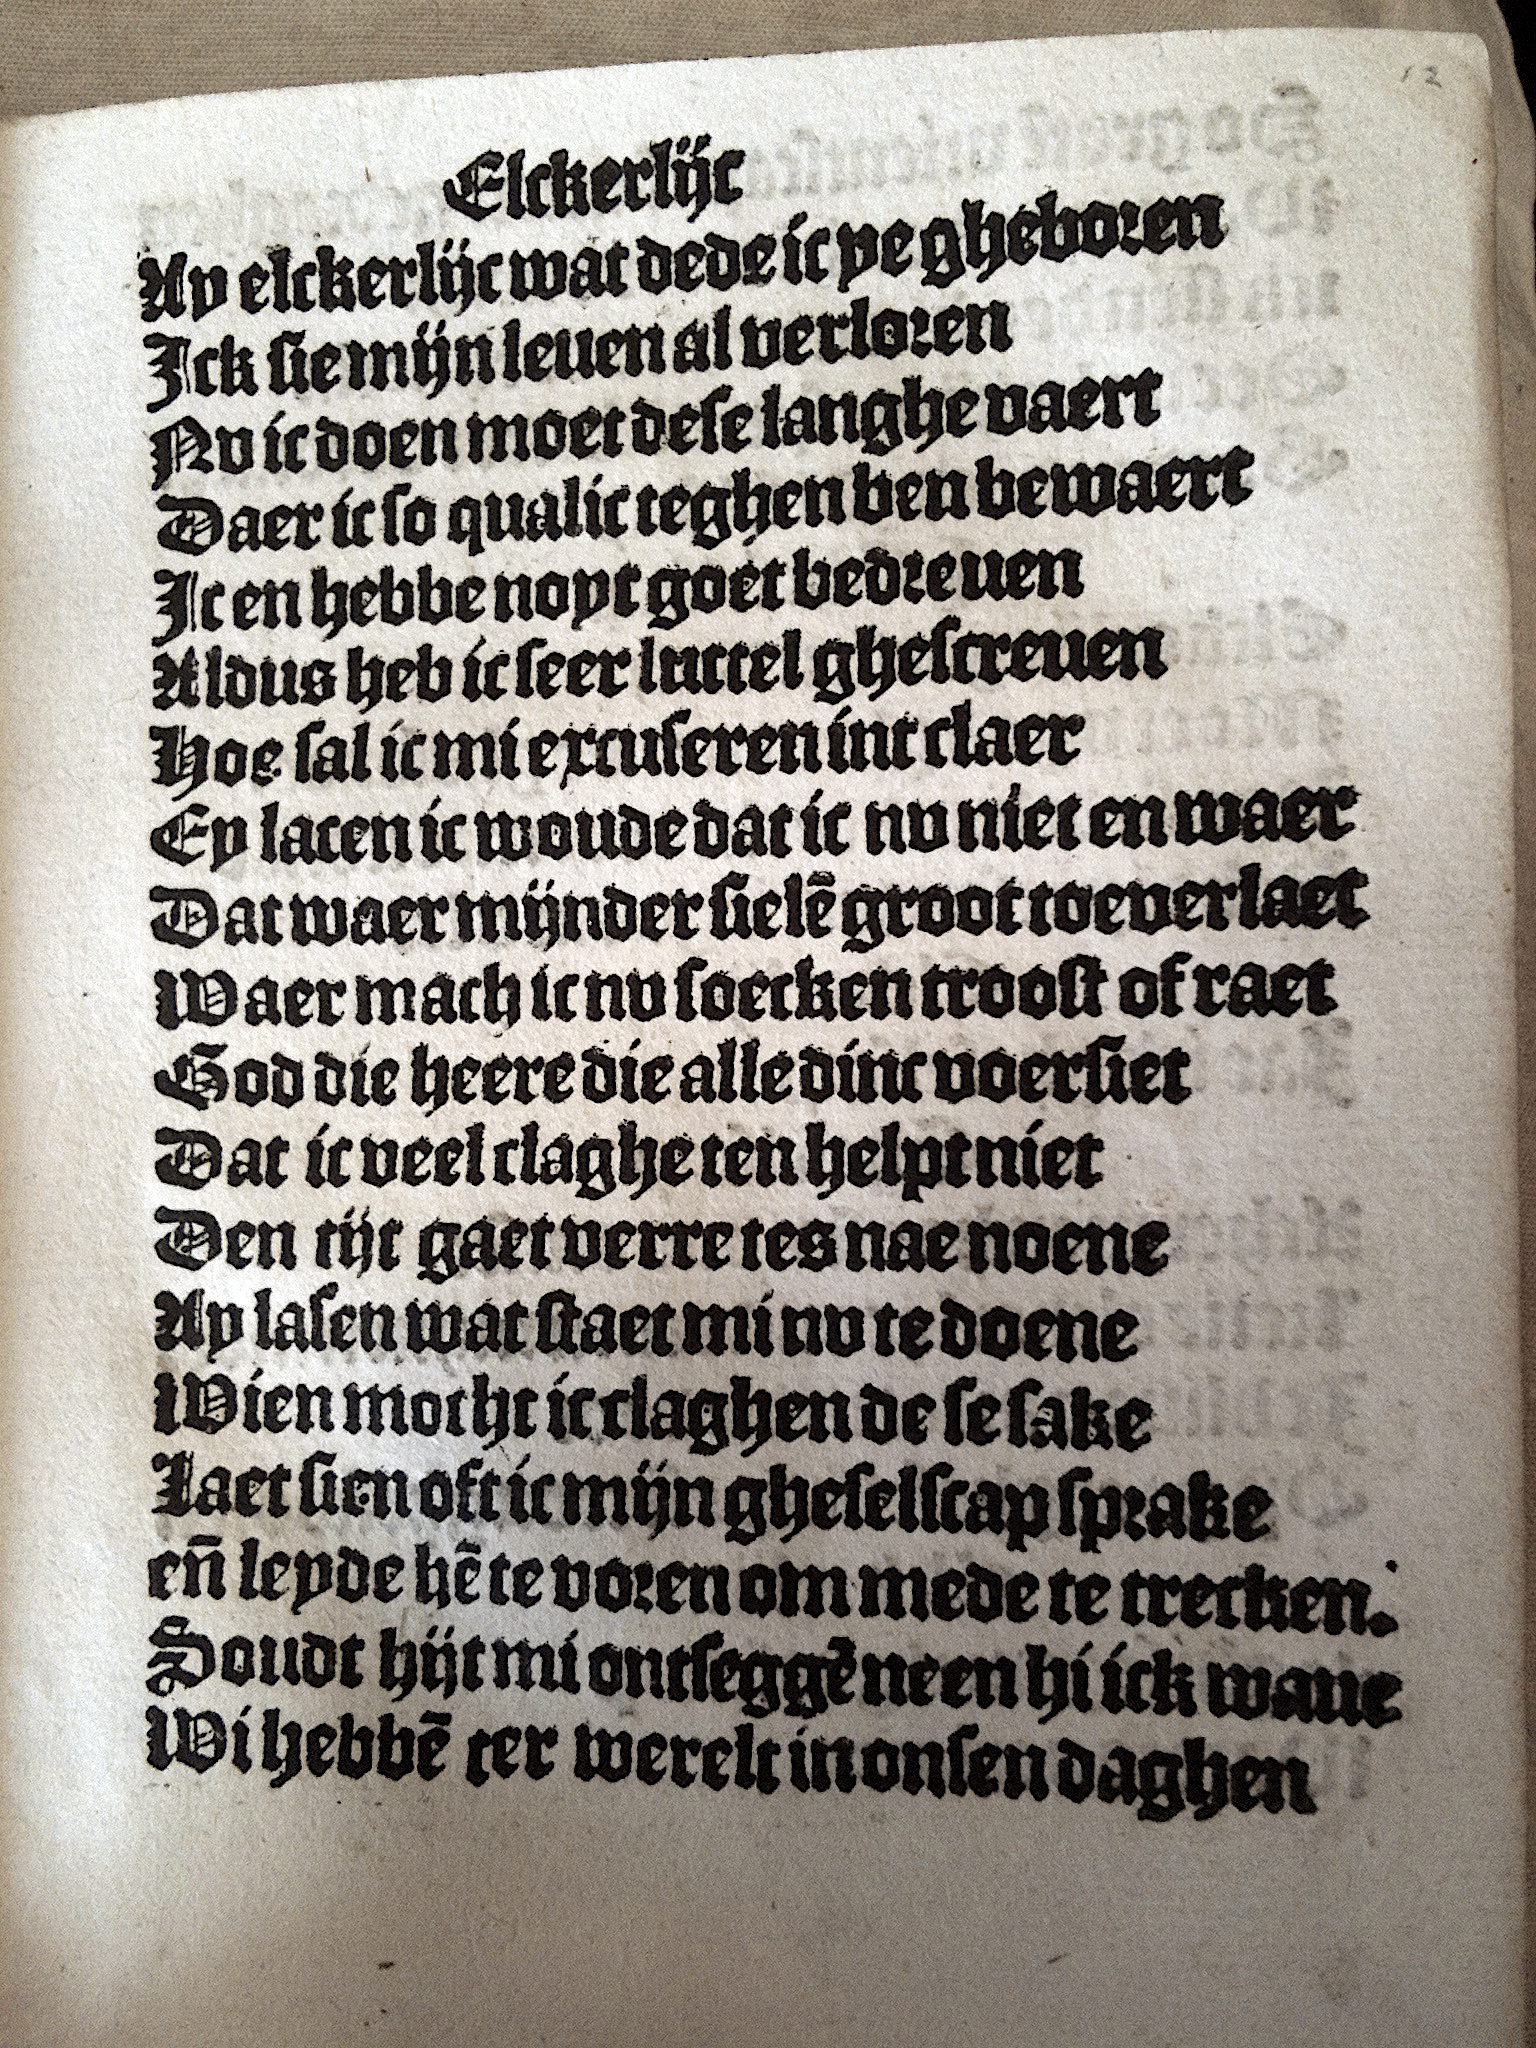 12
Elckerlijc
Ay elckerlijc wat dede ic ye gheboren
Ick sie mijn leuen al verloren
Nv ic doen moet dese langhe vaert
Daer ic so qualic teghen ben bewaert
Ic en hebbe noyt goet bedreuen
Aldus heb ic seer luttel ghescreuen
Hoe sal ic mi excuseren int claer
Ey lacen ic woude dat ic nv niet en waer
Dat waer mijnder sielē groot toeverlaet
Waer mach ic nv soecken troost of raet
God die heere die alle dinc voersiet
Dat ic veel claghe ten helpt niet
Den tijt gaet verre tes nae noene
Ay lasen wat staet mi nv te doene
Wien mocht ic claghen de se sake
Laet sien oft ic mijn gheselscap sprake
en̄ leyde hē te voren om mede te trecken.
Soudt hijt mi ontseggē neen hi ick wane
Wi hebbē ter werelt in onsen daghen